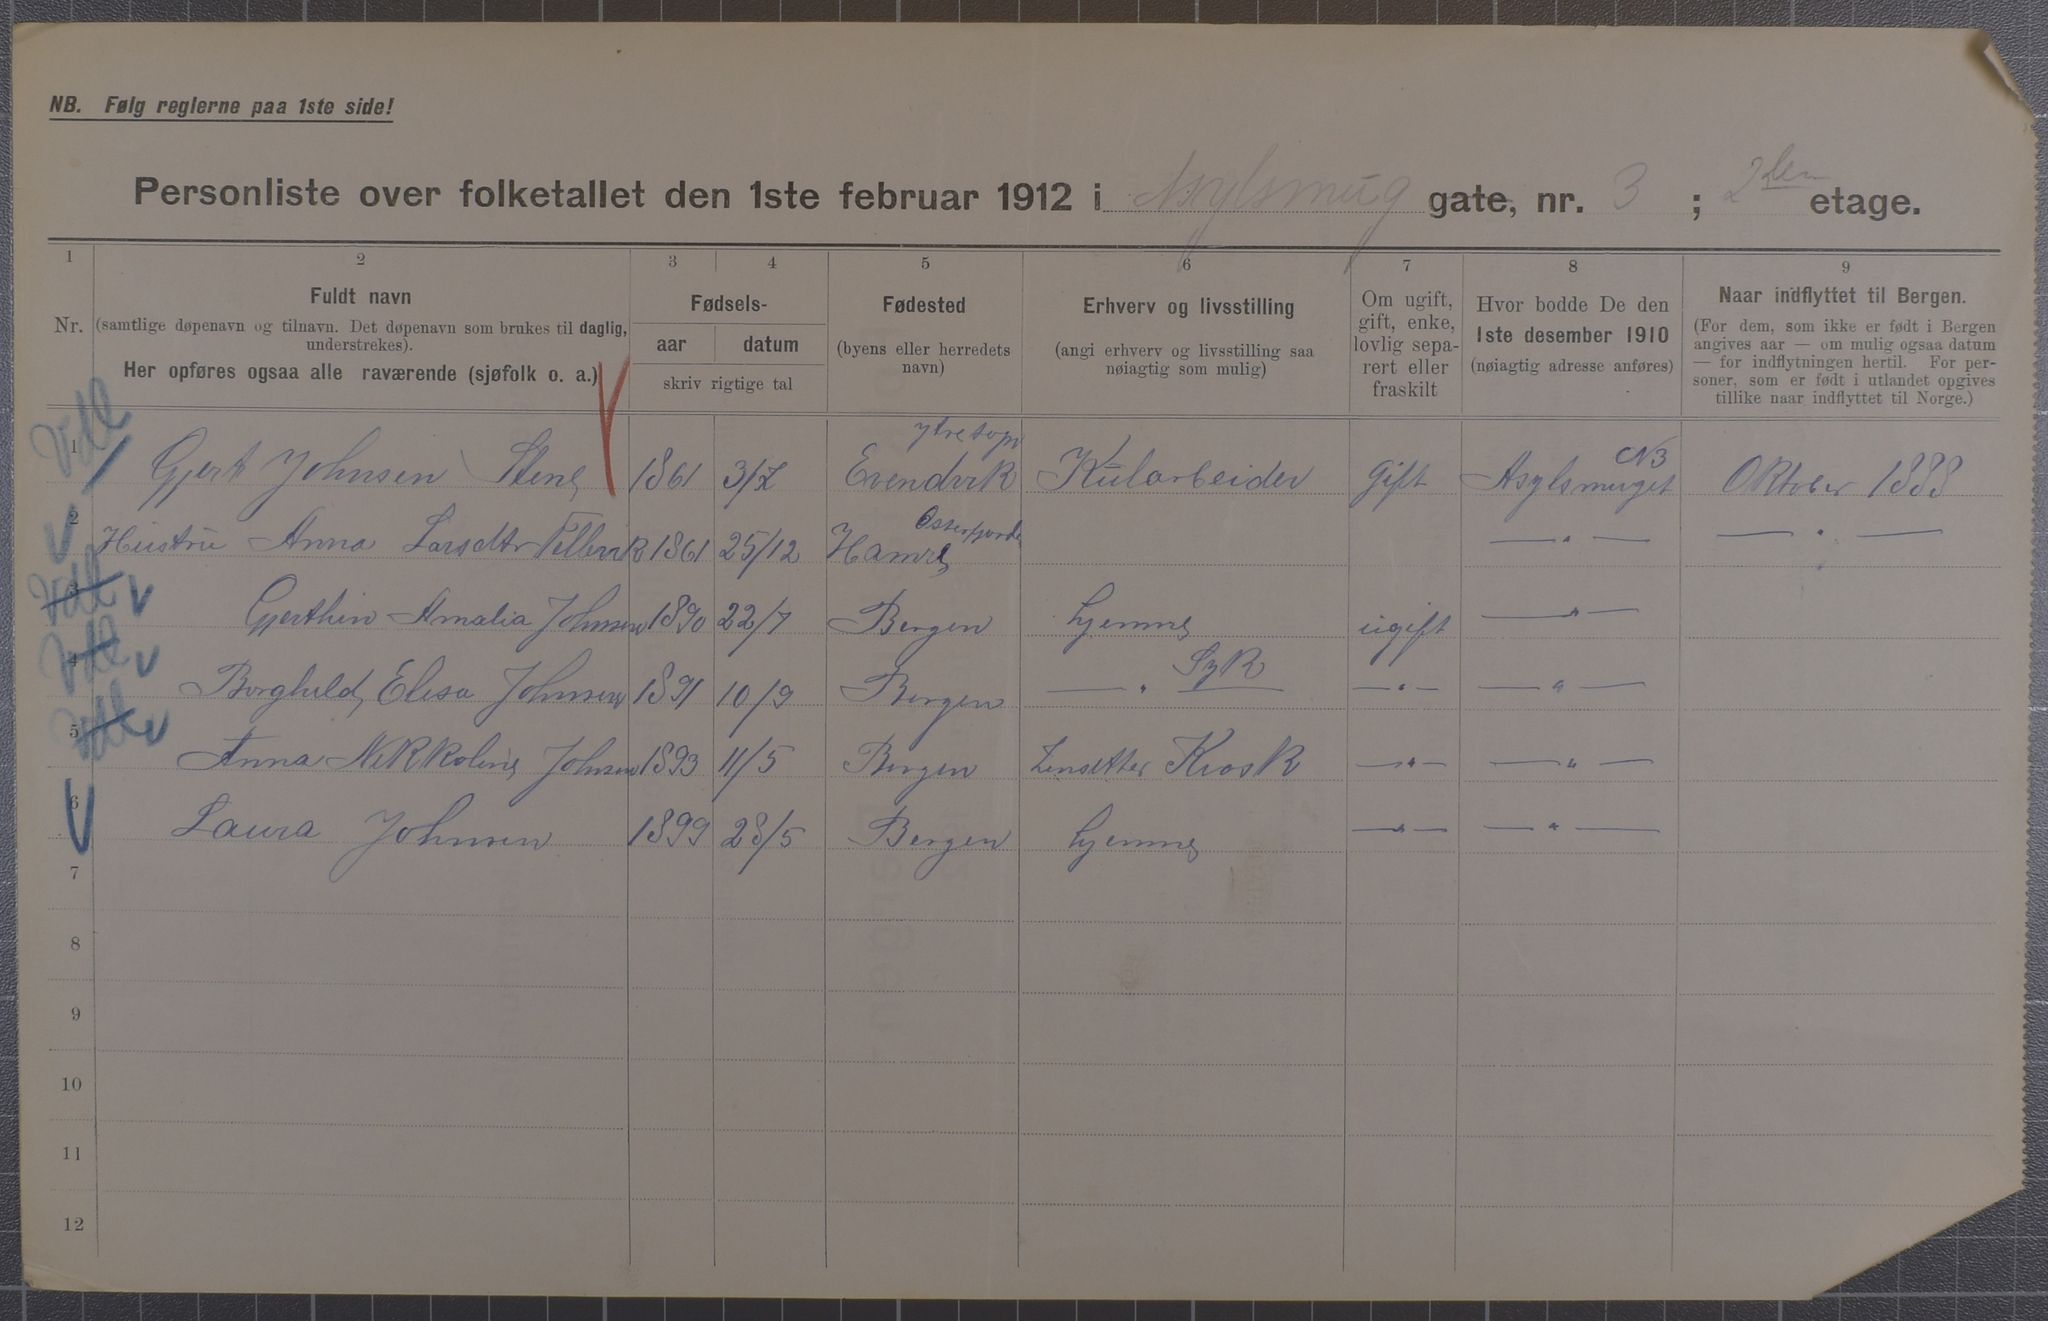 NB. Følg reglerne paa 1ste side!
Personliste over folketallet den 1ste februar 1912 i Asylsmug gate, nr. 3 ; 2den etage.
1 2 3 4 5 6 7 8 9
Nr.
Fuldt navn
(samtlige døpenavn og tilnavn. Det døpenavn som brukes til daglig,
understrekes).
Her opføres ogsaa alle raværende (sjøfolk o. a.)
Fødsels-
aar datum
skriv rigtige tal
Fødested
(byens eller herredets
navn)
Erhverv og livsstilling
(angi erhverv og livsstilling saa
nøiagtig som mulig)
Om ugift,
gift, enke,
lovlig sepa-
rert eller
fraskilt
Hvor bodde De den
1ste desember 1910
(nøiagtig adresse anføres)
Naar indflyttet til Bergen.
(For dem, som ikke er født i Bergen
angives aar — om mulig ogsaa datum
— for indflytningen hertil. For per-
soner, som er født i utlandet opgives
tillike naar indflyttet til Norge.)
1 Gjert Johnsen Stene 1861 Evendvik Kularbeider gift Asylsmuget N3 Oktober 1888
2 Hustru Anna Larsdtr 1861 25/12 Hamre Osterfjorde — " — — " —
3 Gjerthin Amalia Johnsen 1890 22/7 Bergen hjemme ugift — " —
4 Borghild Elisa Johnsen 1891 10/9 Bergen — " — Syk — " — — " —
5 Anna Johnsen 1893 11/5 Bergen Kiosk — " — — " —
6 Laura Johnsen 1899 28/5 Bergen hjemme — " — — " —
7
8
9
10
11
12